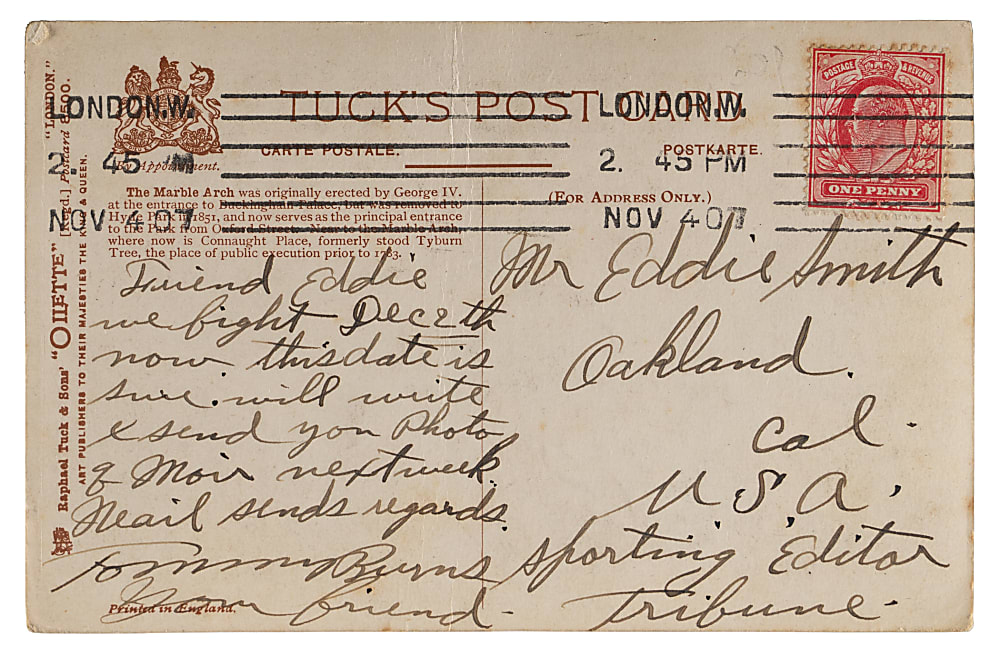 TUCK'S POST CARD
CARTE POSTALE.
POSTKARTE.
By Appointment.
(FOR ADDRESS ONLY.)
The Marble Arch was originally erected by George IV.
at the entrance to Buckingham Palace, but was removed to
Hyde Park in 1851, and now serves as the principal entrance
to the Park from Oxford Street. Near to the Marble Arch,
where now is Connaught Place, formerly stood Tyburn
Tree, the place of public execution prior to 1783.
LONDON.W.
2. 45 PM
NOV 4 07
LONDON.W.
2. 45 PM
NOV 4 07
POSTAGE & REVENUE
ONE PENNY
Friend Eddie
we fight Dec 2th
now. this date is
sure. will write
& send you Photo
of Moir next week.
Neail sends regards.
Tommy Burns
Your friend.
Mr Eddie Smith
Oakland.
Cal.
U.S.A.
Sporting Editor
Tribune.
Printed in England.
Raphael Tuck & Sons' "OILETTE" [Regd.] Postcard 8500.
"LONDON."
ART PUBLISHERS TO THEIR MAJESTIES THE KING & QUEEN.